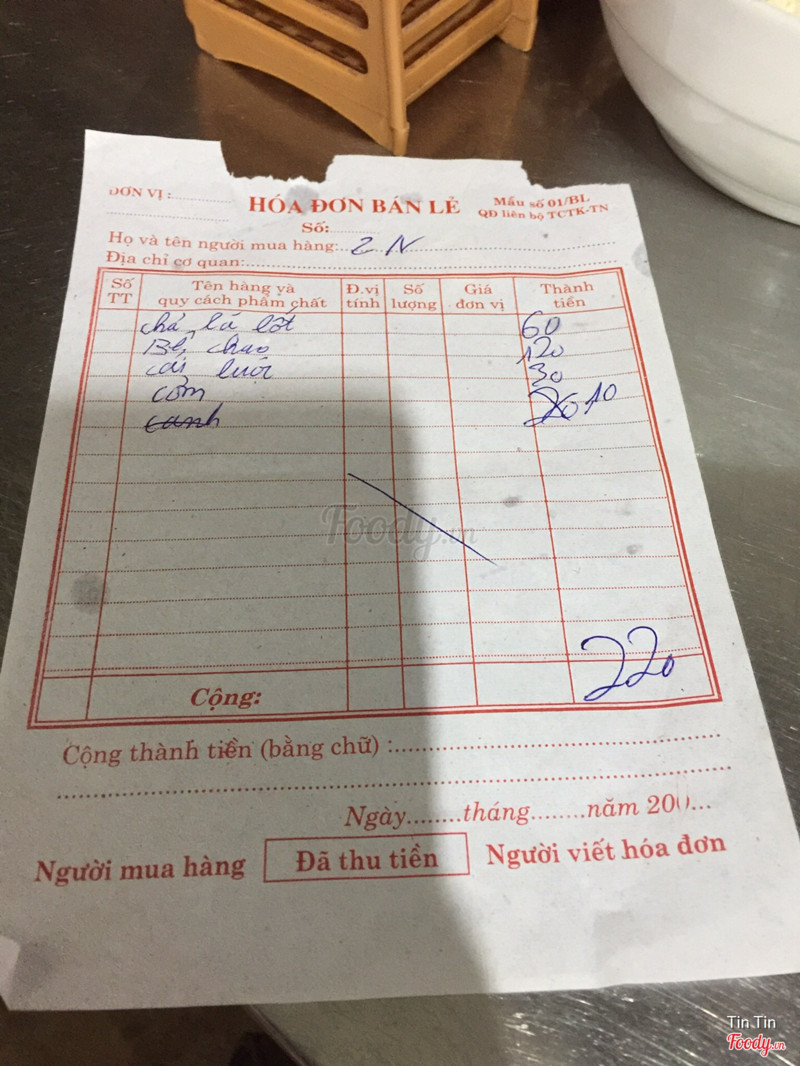 ĐƠN VỊ :
HÓA ĐƠN BÁN LẺ
Mẫu số 01/BL
QĐ liên bộ TCTK-TN
Số:
Họ và tên người mua hàng: 2 N
Địa chỉ cơ quan:
Số TT Tên hàng và quy cách phẩm chất Đ.vị tính Số lượng Giá đơn vị Thành tiền
chả lá lốt 60
Bê chao 120
cải luộc 30
cơm 10
canh
Foody.vn
Cộng: 220
Cộng thành tiền (bằng chữ) :
Ngày........tháng........năm 200...
Người mua hàng Đã thu tiền Người viết hóa đơn
Tin Tin
Foody.vn